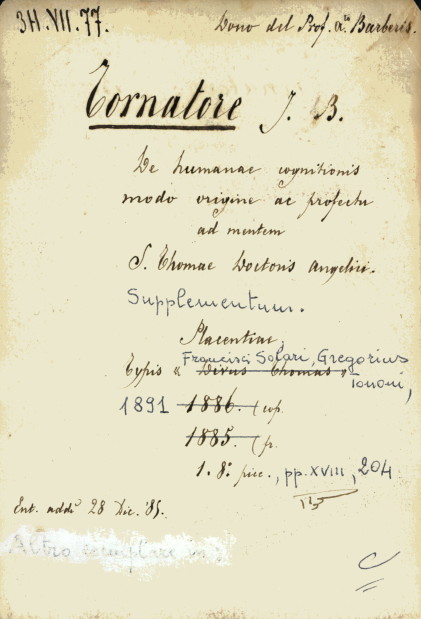 3H.VII.77.
Dono del Prof. A. Barberis.
Tornatore J. B.
De humanae cognitionis
modo origine ac profectu
ad mentem
S. Thomae Doctoris Angelici.
Supplementum.
Placentiae,
Francisci Solari, Gregorius
Typis « Divus Thomas »
Tononi,
1891 1886. (cop.
1885. (fr.
1. 8.° picc., pp. XVIII, 204
Ent. addì 28 Dic. '85.
Altro esemplare in:
C